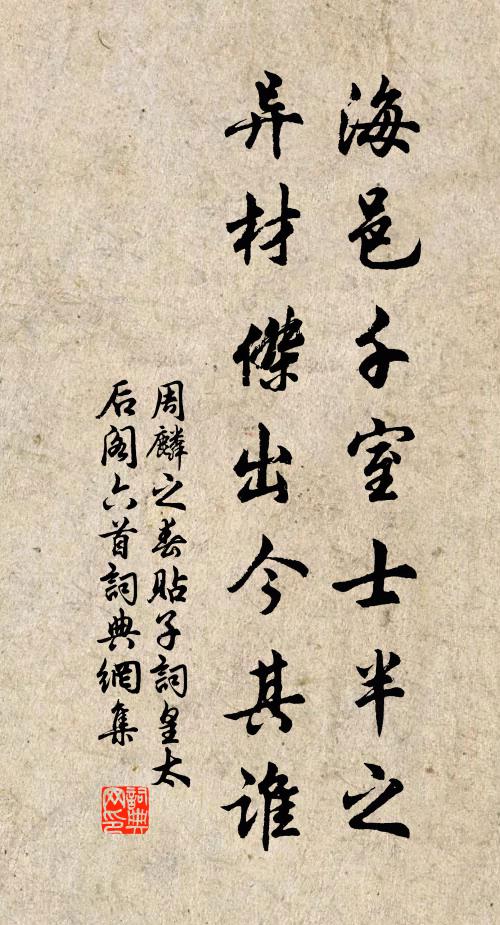 海邑千室士半之
异材傑出今其谁
周麟之春贴子詞皇太
后阁六首詞典網集
詞典
网印